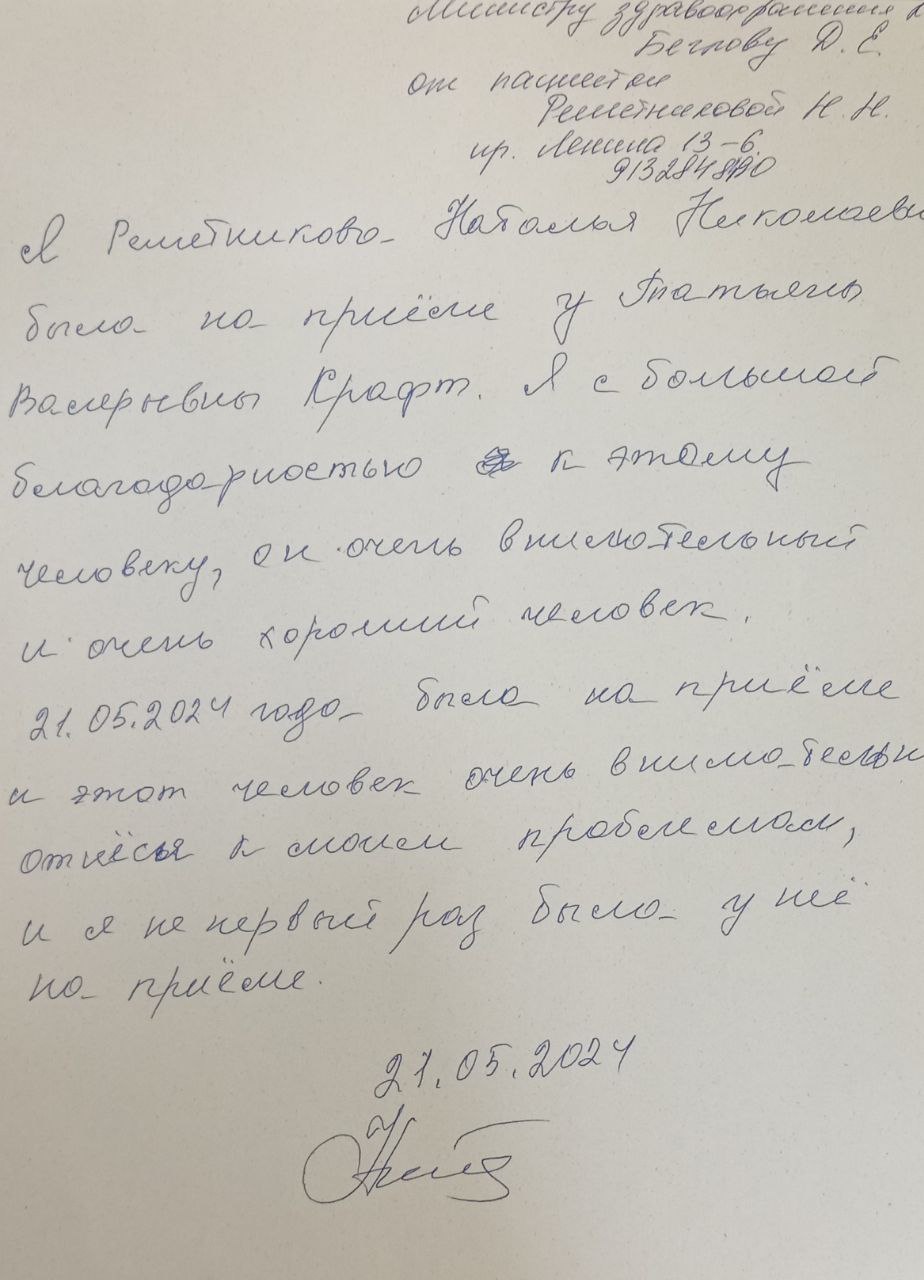 Министру здравоохранения
Беглову Д. Е.
от пациентки
Решетниковой Н. Н.
пр. Ленина 13-6.
Я Решетникова Наталья Николаевн
была на приёме у Татьяны
Валерьевны Крафт. Я с большой
благодарностью к этому
человеку, он очень внимательный
и очень хороший человек.
21.05.2024 года была на приёме
и этот человек очень внимательн
отнёсся к моим проблемам,
и я не первый раз была у неё
на приёме.
21.05.2024